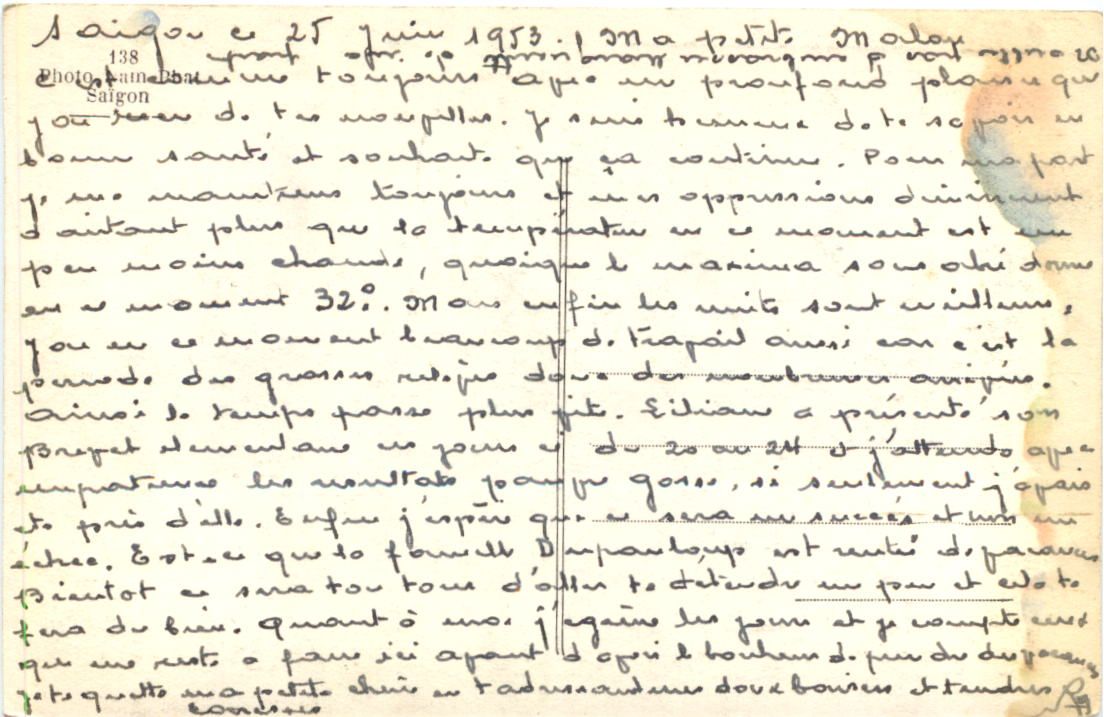 Saigon ce 25 Juin 1953. Ma petite
138
Photo Nam Phat
Saigon
c'est comme toujours avec un proufond plaisir que
j'ai recu de tes nouvelles. Je suis heureux de te savoir en
bonne santé et souhaite que ça continue. Pour ma part
je me maintiens toujours et mes oppressions diminuent
d'autant plus que la température en ce moment est un
peu moins chaude, quoique le maxima sous abri donne
en ce moment 32°. Mais enfin les nuits sont meilleures.
J'ai en ce moment beaucoup de travail aussi car c'est la
periode des grosses relève donc des nombreuses arrivées.
Ainsi le temps passe plus vite. Liliane a présenté son
Brevet elementaire ces jours ci du 20 au 24 et j'attends avec
impatience les resultats pauvre gosse, si seulement j'avais
ete près d'elle. Enfin j'espère que ce sera un succés et non un
échec. Est ce que la famille Dupanloup est rentré de vacances
Bientot ce sera ton tour d'aller te détendre un peu et cela te
fera du bien. Quant à moi j'egrène les jours et je compte ceux
qui me reste a faire ici avant d'avoir le bonheur de prendre des vacances
je te quitte ma petite cherie en t'adressant mes doux baisers et tendres
caresses